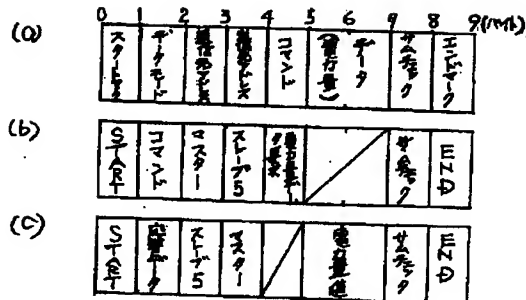 0 1 2 3 4 5 6 7 8 9 (バイト)
(a) スタートマーク データモード 送信元アドレス 送信先アドレス コマンド (電力量) データ サムチェック エンドマーク
(b) START コマンド マスター スレーブ5 サムチェック END
(c) START 応答データ スレーブ5 マスター 電力量値 サムチェック END